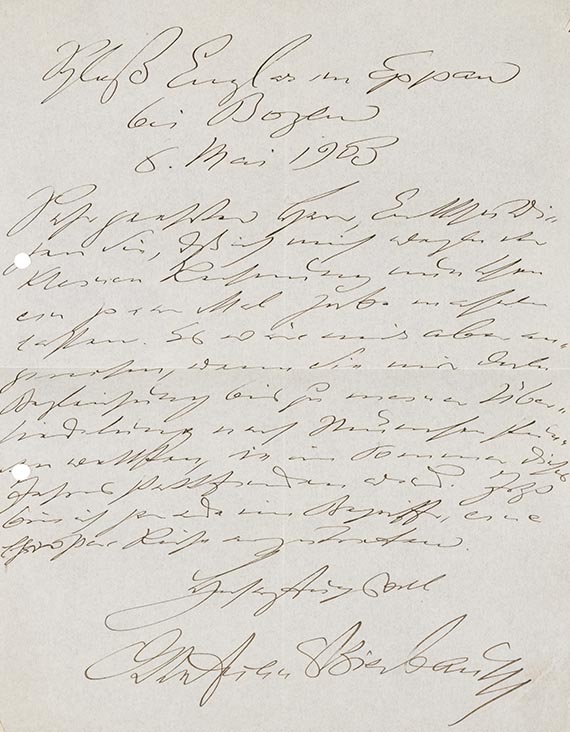 Schloß Englar in Eppan
bei Bozen
6. Mai 1903
Sehr geehrter Herr, Entschuldi-
gen Sie, daß ich mich wegen der
kleinen Rechnung von Ihnen
ein paar Mal habe mahnen
lassen. Es wäre mir aber an-
genehm, wenn Sie mir deren
Begleichung bis zu meiner Über-
siedelung nach München
wollten, die im Sommer dieses
Jahres stattfinden wird. Jetzt
bin ich gerade im Begriffe, eine
Reise anzutreten.
Hochachtungsvoll
Otto Julius Bierbaum